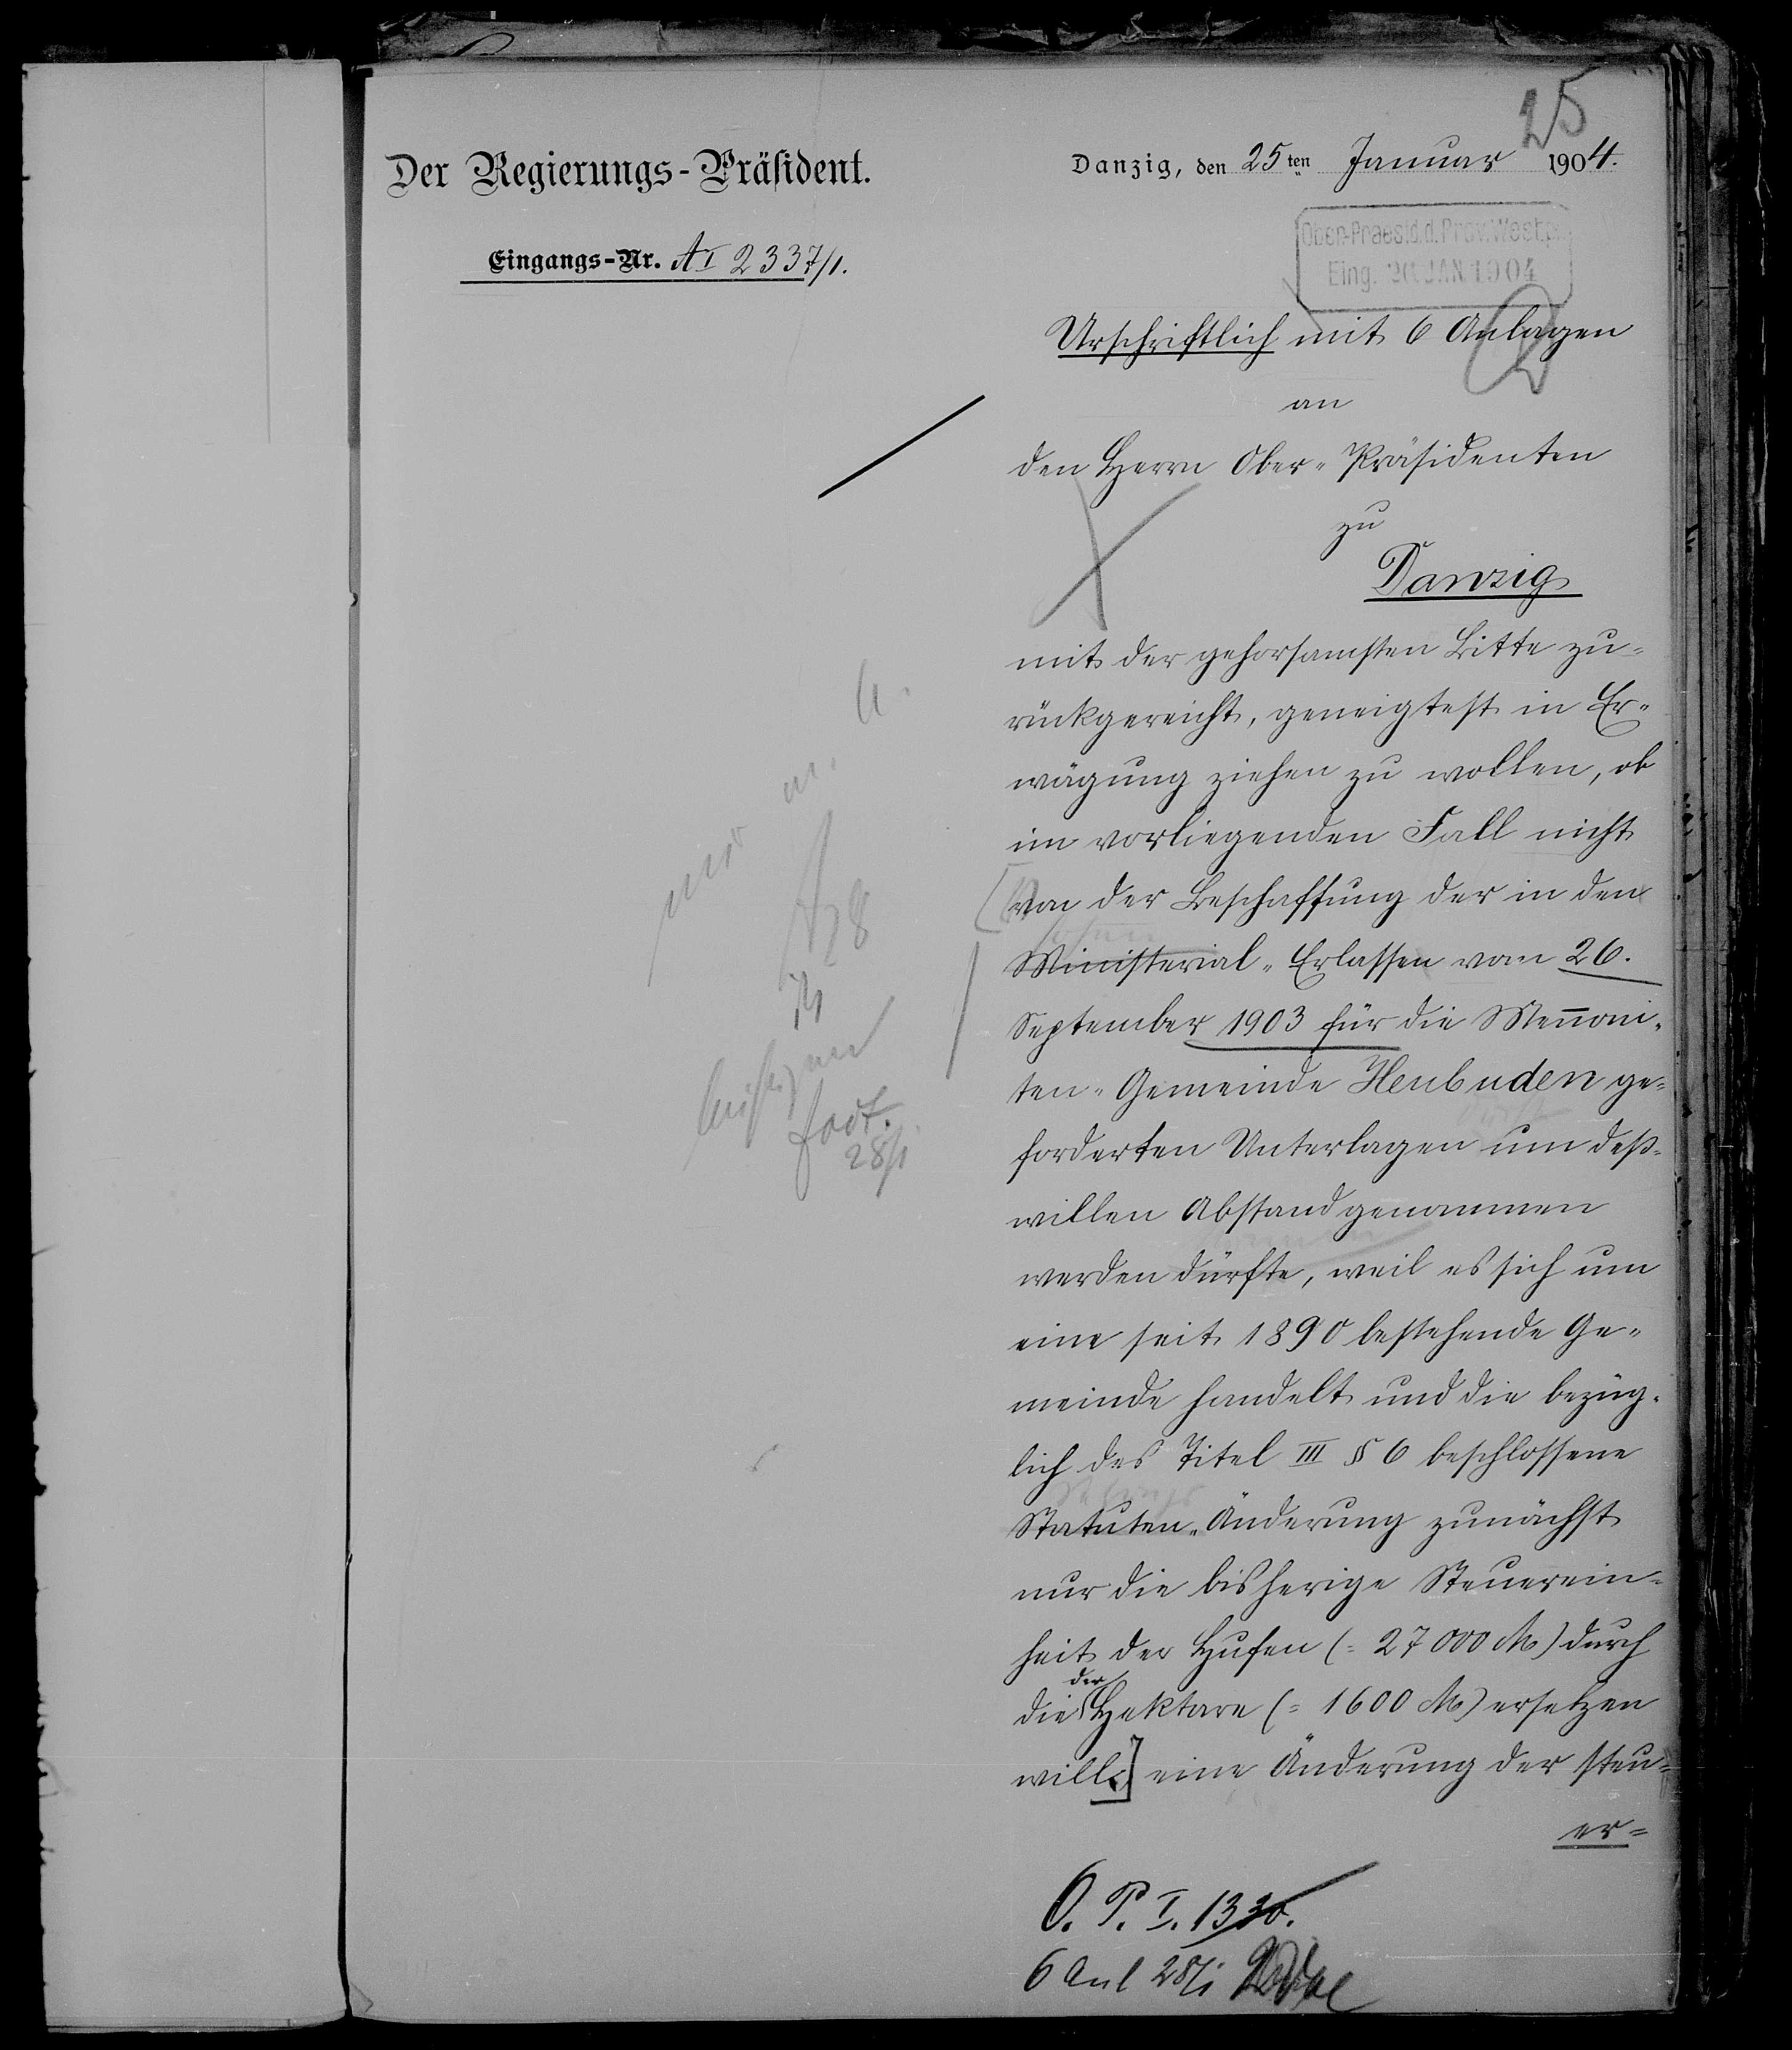 25
Der Regierungs-Präsident.
Danzig, den 25ten Januar 1904.
Eingangs-Nr. A I 2337/1.
Ober-Praesid. d. Prov. Westpr.
Eing. JAN. 1904
Urschriftlich mit 6 Anlagen
an
den Herrn Ober-Präsidenten
zu
Danzig
mit der gehorsamsten Bitte zu-
rückgereicht, geneigtest in Er-
wägung ziehen zu wollen, ob
im vorliegenden Fall nicht
[von der Beschaffung der in den
Ministerial-Erlassen vom 26.
September 1903 für die Mennoni-
ten-Gemeinde Heubuden ge-
forderten Unterlagen um deß-
willen Abstand genommen
werden dürfte, weil es sich um
eine seit 1890 bestehende Ge-
meinde handelt und die bezüg-
lich des Titel III § 6 beschlossene
Statuten-Änderung zunächst
nur die bisherige Steuerein-
heit der Hufen (= 27000 M) durch
die der Hektare (= 1600 M) ersetzen
will.] eine Änderung der steu-
er-
28/1
O. P. I. 1330.
6 Anl 28/1